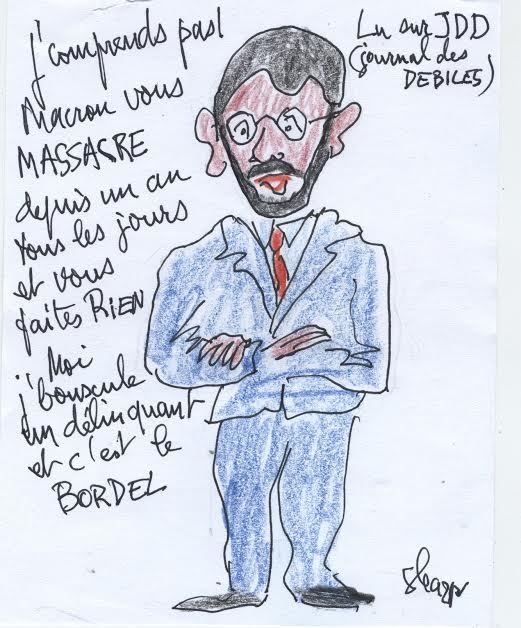 J'comprends pas!
Macron vous
MASSACRE
depuis un an
tous les jours
et vous
faites RIEN
Moi
j'bouscule
un délinquant
et c'est le
BORDEL
Lu sur JDD
(journal des
DEBILES)